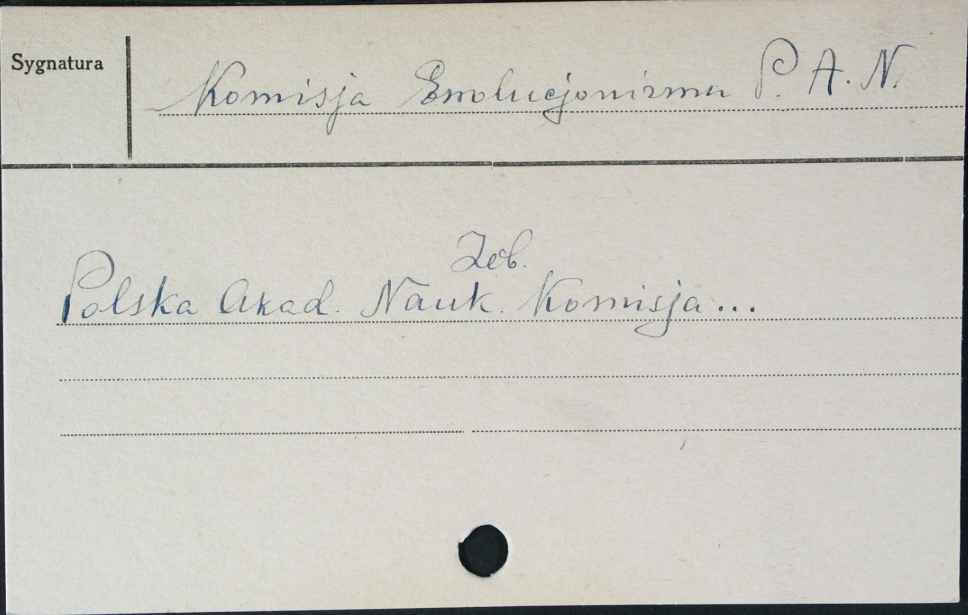 Sygnatura
Komisja Ewolucjonizmu P. A. N.
Zob.
Polska Akad. Nauk. Komisja...